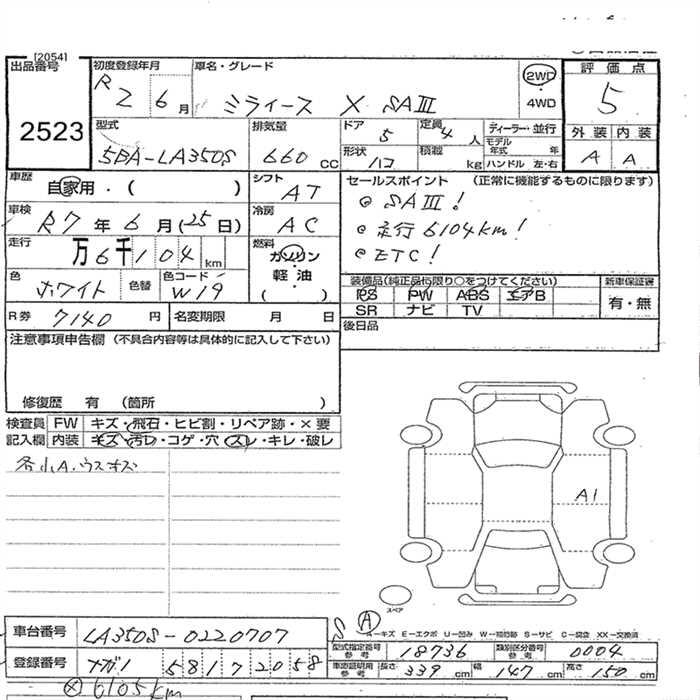 [2054]
出品番号
2523
初度登録年月
R2 6月
車名・グレード
ミライース X SAⅢ
2WD
・
4WD
評価点
5
外装 内装
A A
型式
5BA-LA350S
排気量
660 CC
ドア 5
定員 4 人
形状 ハコ
積載 kg
ディーラー・並行
モデル年式 年
ハンドル 左・右
車歴 自家用・( )
シフト AT
車検 R7年6月(25日)
冷房 AC
走行 万6千104 km
燃料 ガソリン
軽・油
( )
色 ホワイト 色替
色コード W19
R券 7140 円
名変期限 月 日
セールスポイント (正常に機能するものに限ります)
@ SAⅢ!
@ 走行 6104km!
@ ETC!
装備品(純正品に限り○をつけてください)
PS PW ABS エアB
SR ナビ TV
新車保証書
有・無
後日品
注意事項申告欄 (不具合内容等は具体的に記入して下さい)
修復歴 有 (箇所 )
検査員 FW キズ・飛石・ヒビ割・リペア跡・×要
記入欄 内装 キズ・汚レ・コゲ・穴・スレ・キレ・破レ
各小A.ウスキズ
A1
スペア
車台番号 LA350S-0220707
登録番号 ナガノ 581 7 2058
S Ⓐ
A-キズ E-エクボ U-凹み W-補修跡 S-サビ C-腐食 XX-交換済
型式指定番号 参考 18736
類別区分番号 参考 0004
車庫証明用 参考 長さ 339 cm 幅 147 cm 高さ 150 cm
6105km